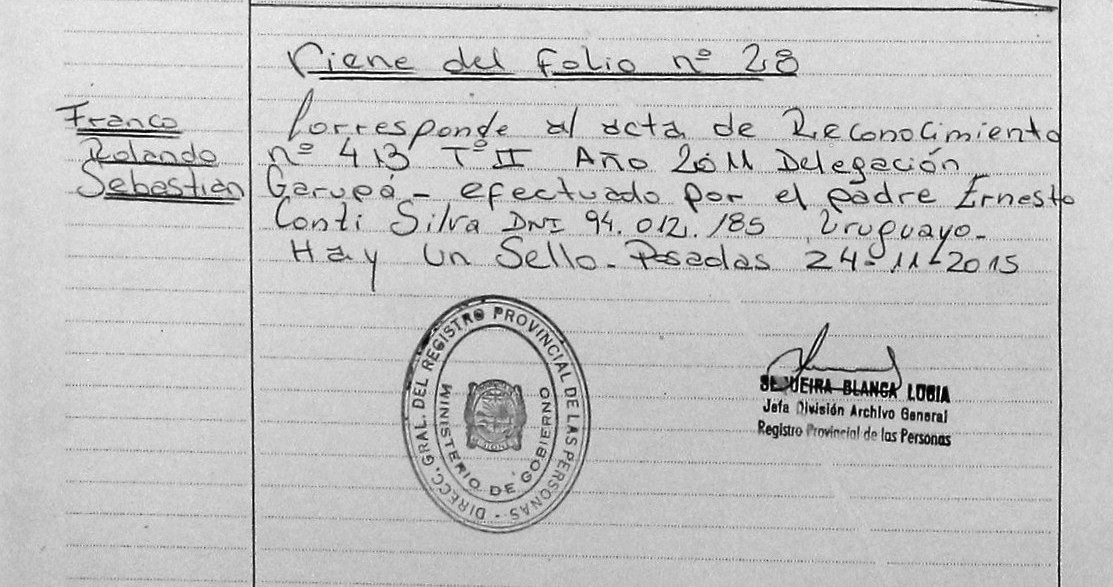 Viene del Folio nº 28
Franco
Rolando
Sebastián
Corresponde al acta de Reconocimiento
nº 413 Tº II Año 2011 Delegación
Garupá - efectuado por el padre Ernesto
Conti Silva DNI 94.012.185 Uruguayo-
Hay un Sello - Posadas 24-11-2015
DIRECC. GRAL. DEL REGISTRO PROVINCIAL DE LAS PERSONAS -
MINISTERIO DE GOBIERNO
MISIONES
SEQUEIRA BLANCA LUCIA
Jefa División Archivo General
Registro Provincial de las Personas